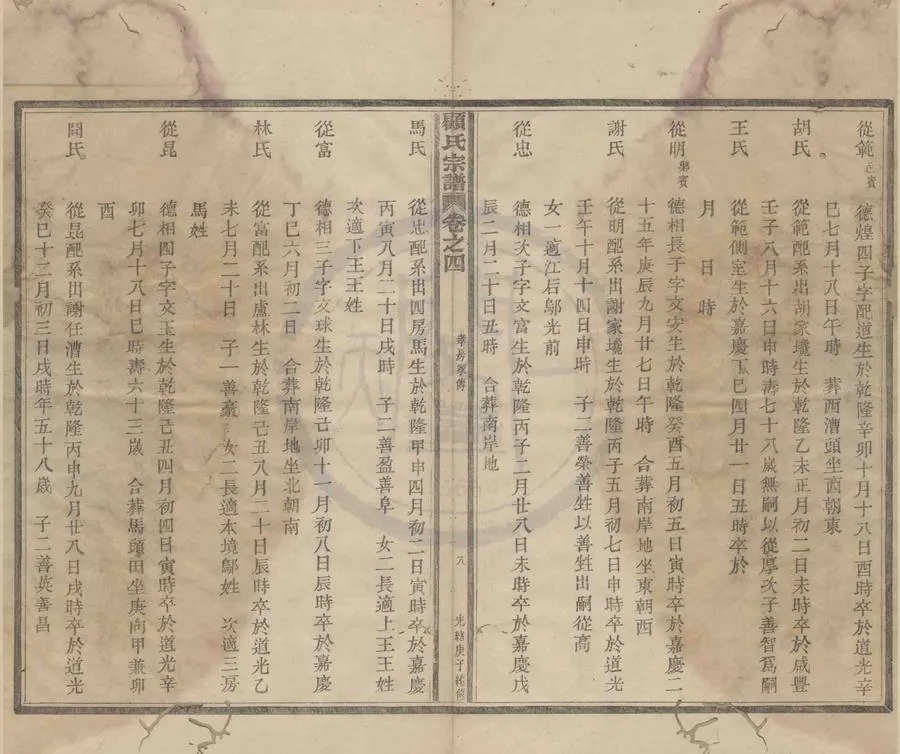 從範 邑賓 德煌四子字配道生於乾隆辛卯十月十八日酉時卒於道光辛
巳七月十八日午時 葬西漕頭坐西朝東
胡氏 從範配系出胡家墺生於乾隆乙未正月初二日未時卒於咸豐
壬子八月十六日申時壽七十八歲無嗣以從厚次子善智爲嗣
王氏 從範側室生於嘉慶丁巳四月廿一日丑時卒於
月 日 時
從明 鄉賓 德相長子字文安生於乾隆癸酉五月初五日寅時卒於嘉慶二
十五年庚辰九月廿七日午時 合葬南岸地坐東朝西
謝氏 從明配系出謝家墺生於乾隆丙子五月初七日申時卒於道光
壬午十月十四日申時 子二善榮善甡以善甡出嗣從高
女一適江后鄔光前
從忠 德相次子字文富生於乾隆丙子二月廿八日未時卒於嘉慶戊
辰二月二十日丑時 合葬南岸地
顧氏宗譜 卷之四
孝房家傳
八
光緒庚子統修
馬氏 從忠配系出四房馬生於乾隆甲申四月初二日寅時卒於嘉慶
丙寅八月二十日戌時 子二善盈善阜 女二長適上王王姓
次適下王王姓
從富 德相三子字文球生於乾隆己卯十一月初八日辰時卒於嘉慶
丁巳六月初二日 合葬南岸地坐北朝南
林氏 從富配系出盧林生於乾隆己丑八月二十日辰時卒於道光乙
未七月二十日 子一善豪 女二長適本境鄔姓 次適三房
馬姓
從昆 德相四子字文玉生於乾隆己丑四月初四日寅時卒於道光辛
卯七月十八日巳時壽六十三歲 合葬馬頭田坐庚向甲兼卯
酉
聞氏 從昆配系出謝任漕生於乾隆丙申九月廿八日戌時卒於道光
癸巳十二月初三日戌時年五十八歲 子二善英善昌